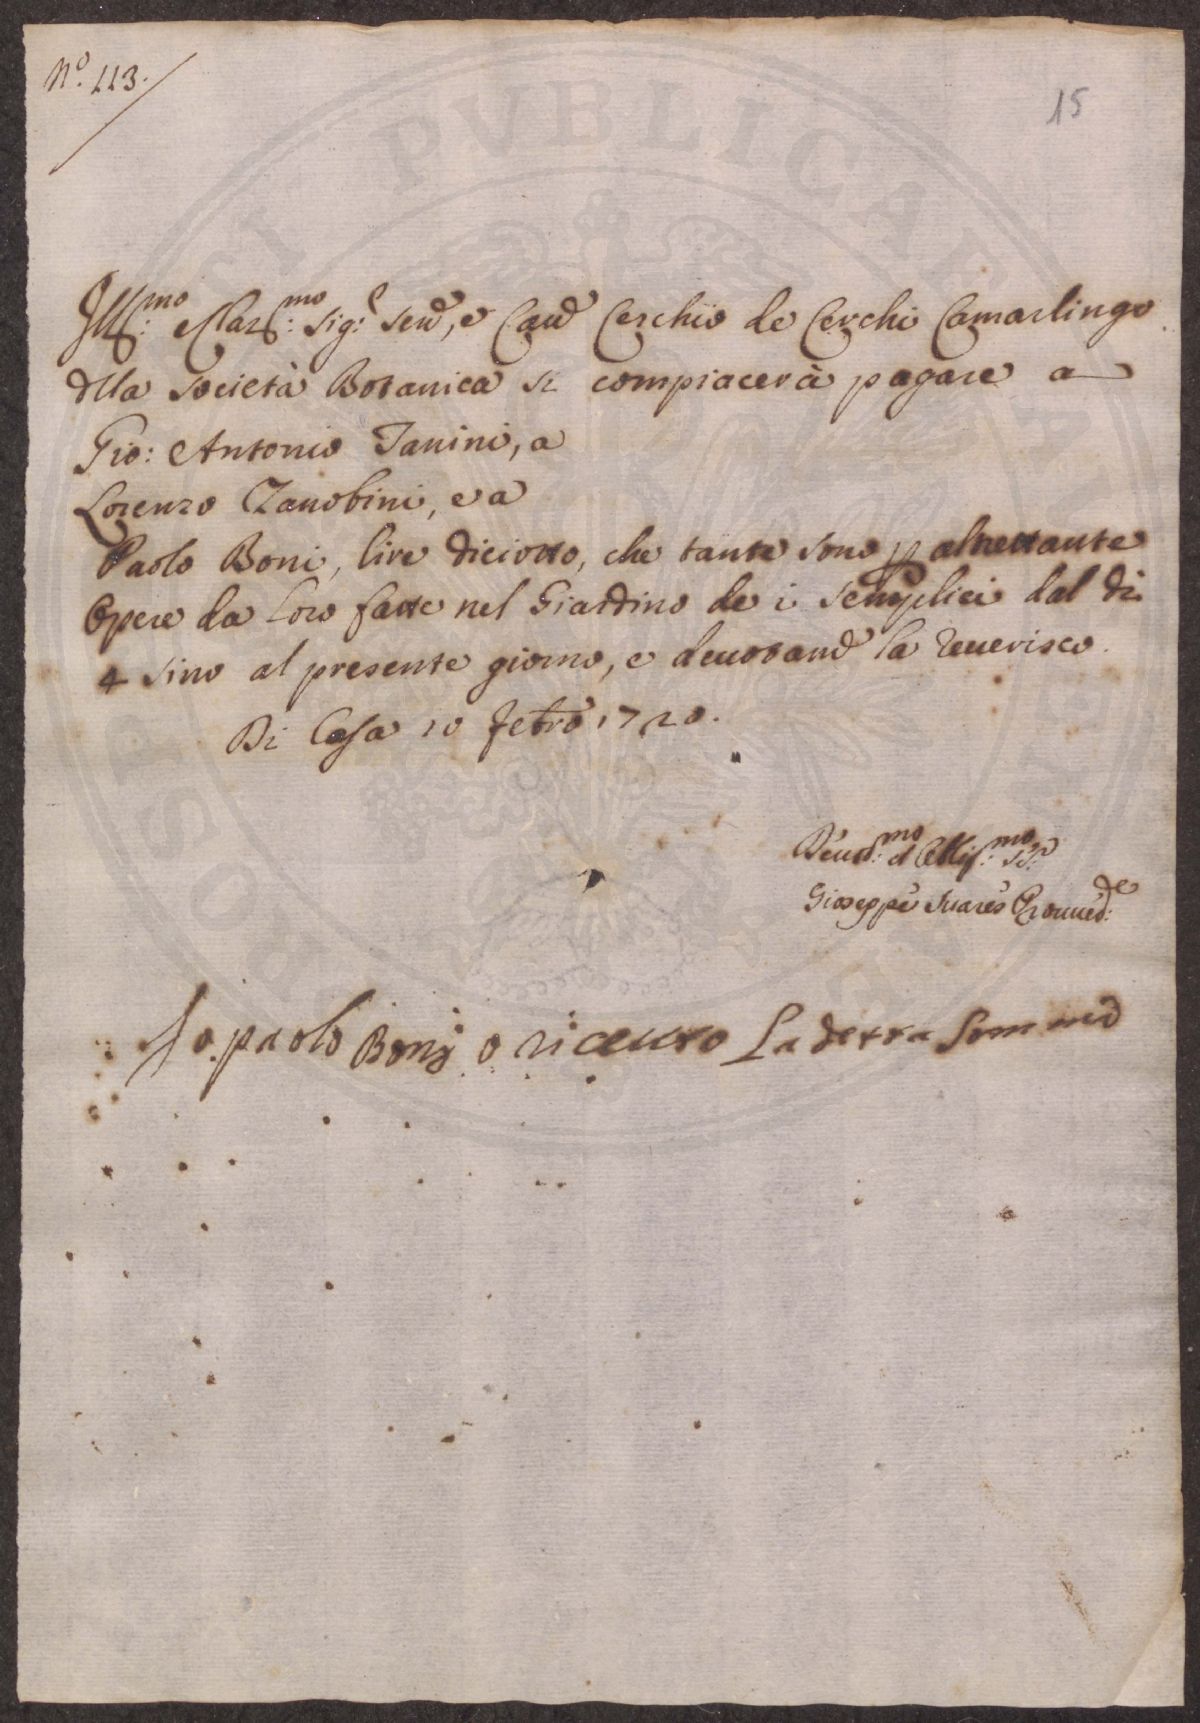 Nº. 113.
15
Ill:mo Clar:mo Sig:r Sen:e, e Cav:e Cerchio de Cerchi Camarlingo
della Società Botanica si compiacerà pagare a
Gio: Antonio Janini, a
Lorenzo Zanobini, e a
Paolo Boni, lire diciotto, che tante sono p altrettante
Opere da Loro fatte nel Giardino de i Semplici dal dì
4 sino al presente giorno, e devotam:e la reverisco.
Di Casa 10 Febro 1720.
Devot:mo et Obblig:mo Se:re
Gioseppe Suares Provved:re
Io paolo Bonj o riceuto La detta Somma